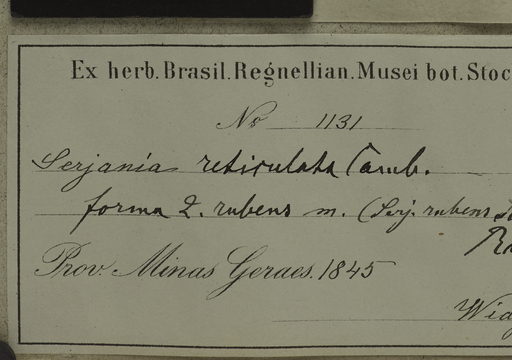 Ex herb. Brasil. Regnellian. Musei bot. Stoc
No 1131
Serjania reticulata Camb.
forma 2. rubens m. (Serj. rubens
Prov. Minas Geraes. 1845